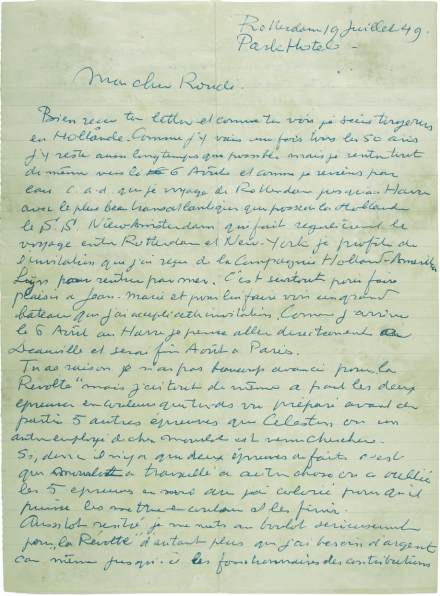 Rotterdam 19 Juillet 49.
Park Hotel -
Mon cher Roudi.
Bien reçu ta letter et comme tu vois je suis toujours
en Hollande. Comme j'y vais une fois tous les 50 ans
j'y reste aussi longtemps que possible mais je rentre tout
de même vers le 6 Août et comme je reviens par
eau c.a.d. que je voyage de Rotterdam jusqu'au Havre
avec le plus beau transatlantique que possède la Hollande
le S.S. Niew-Amsterdam qui fait regulièrement le
voyage entre Rotterdam et New-York je profite de
l'invitation que j'ai reçu de la Compagnie Holland-America
Lijn pour rentrer par mer. C'est surtout pour faire
plaisir a Jean-Marie et pour lui faire voir un grand
bateau que j'ai accepté cette invitation. Comme j'arrive
le 6 Août au Havre je pense aller directement a
Deauville et serai fin Août a Paris.
Tu as raison je n'ai pas beaucoup avancé pour la
Revolte" mais j'ai tout de même a part les deux
épreuves en couleur que tu as vu préparé avant de
partir 5 autres épreuves que Celestin ou un
autre employé de chez mourlot est venu chercher.
Si, donc il n'y a que deux épreuves de faites c'est
que mourlot a travaillé a autre chose ou a oublié
les 5 épreuves en noir que j'ai colorié pour qu'il
puisse les mettre en couleur et les finir.
Aussitot rentré je me mets au boulot serieusement
pour "la Révolte" d'autant plus que j'ai besoin d'argent
car même jusqu'ici les fonctionnaires des contributions